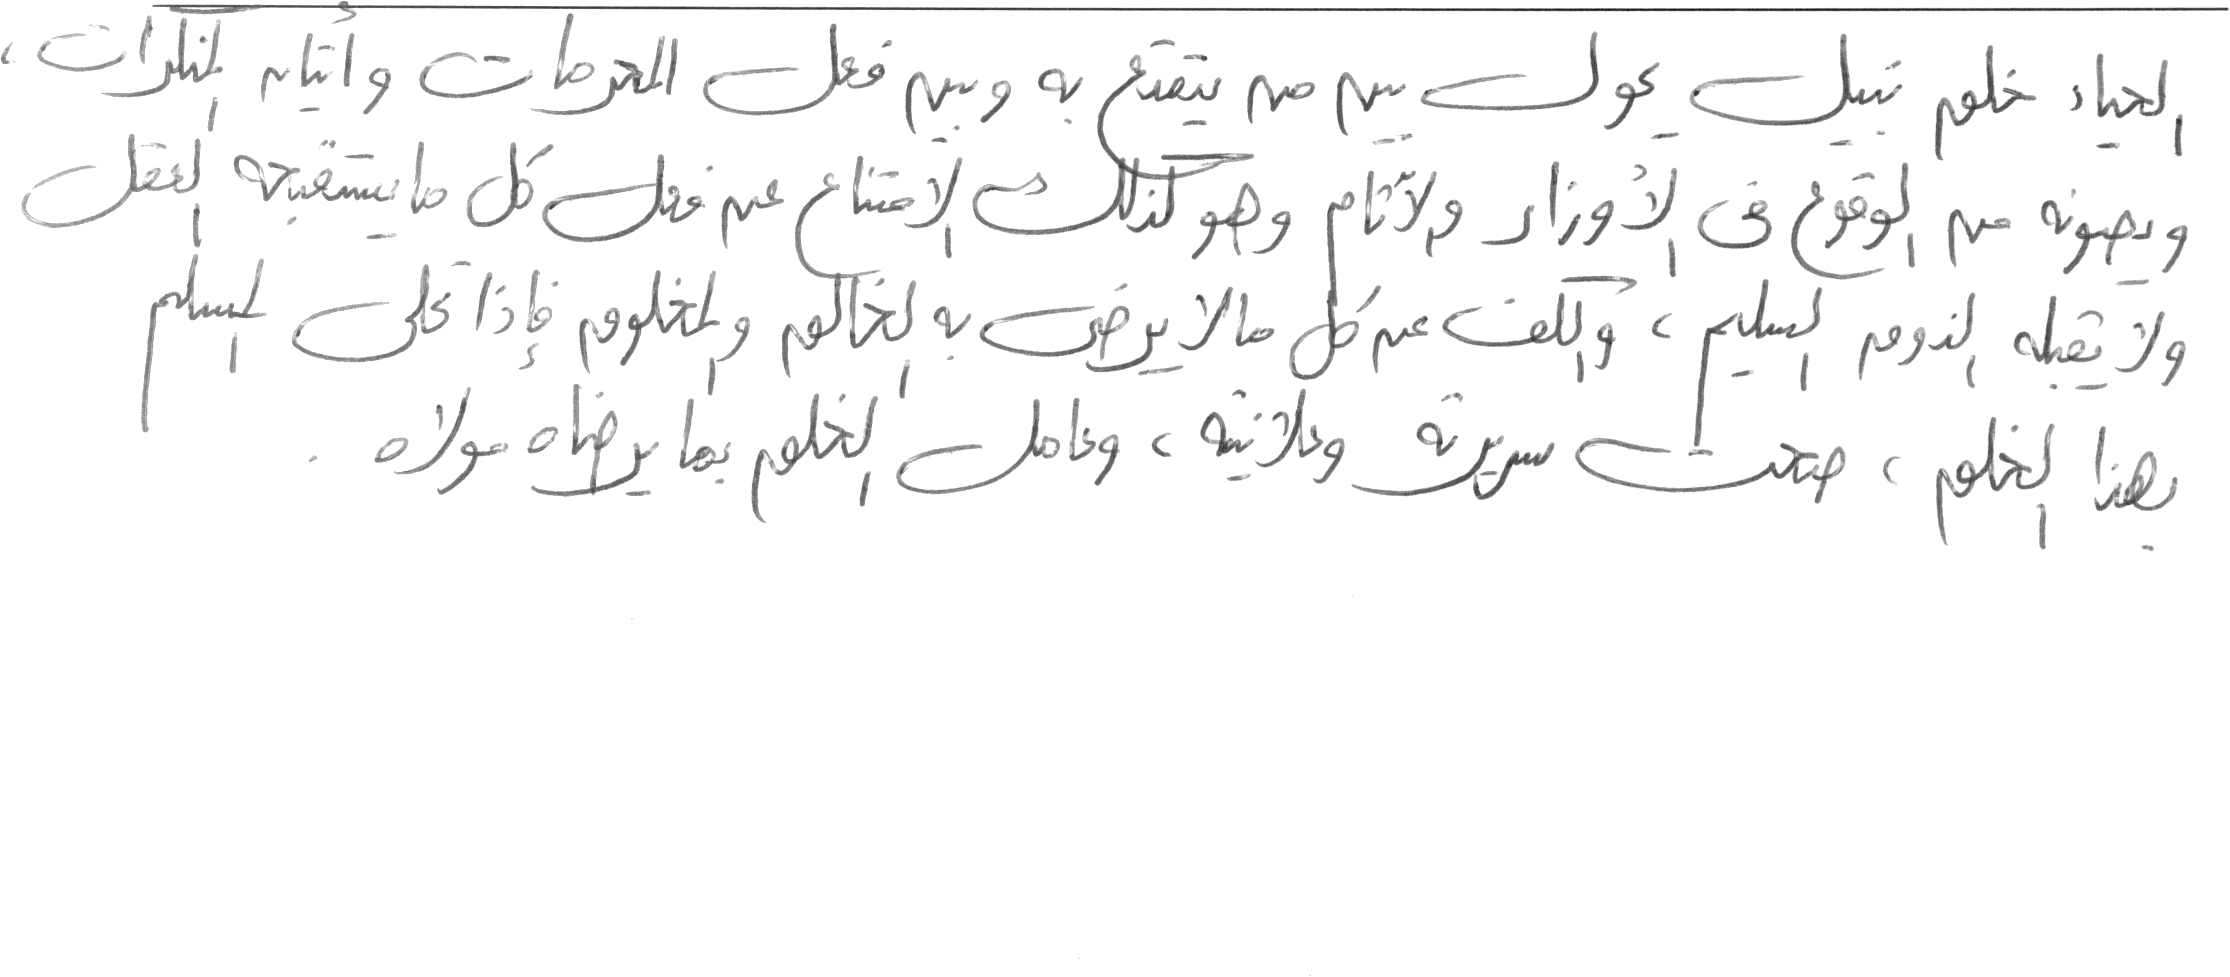 الحياء خلق نبيل يحول بين من يتمتع به وبين فعل المحرمات وأتيان المنكرات ،
ويصونه من الوقوع فى الأوزار والآثام وهو كذلك الامتناع عن فعل كل ما يستقبحه العقل
ولا يقبله الذوق السليم ، والكف عن كل مالا يرضى به الخالق والمخلوق فإذا تحلى المسلم
بهذا الخلق ، صحت سريرته وعلانيته ، وعامل الخلق بما يرضاه مولاه .